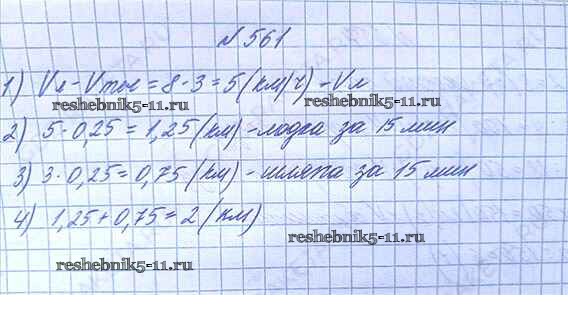 № 561
1) Vл - Vтеч = 8 - 3 = 5 (км/ч) - Vл
reshebnik5-11.ru
reshebnik5-11.ru
2) 5 · 0,25 = 1,25 (км) - лодка за 15 мин
3) 3 · 0,25 = 0,75 (км) - шляпа за 15 мин
4) 1,25 + 0,75 = 2 (км)
reshebnik5-11.ru
reshebnik5-11.ru